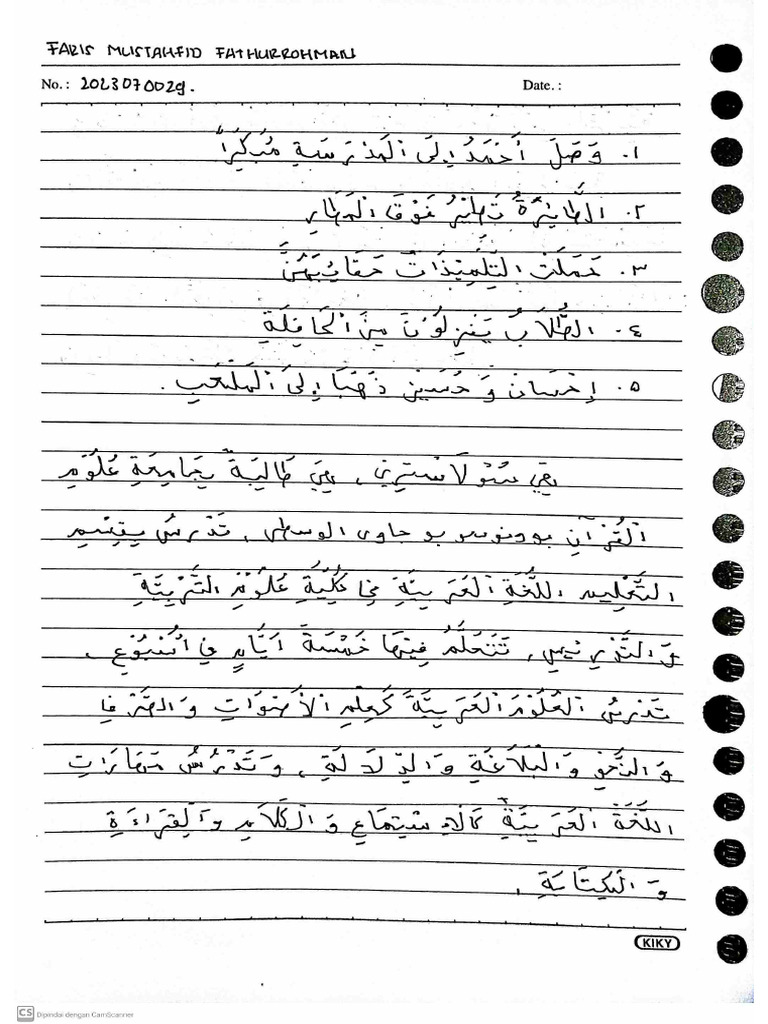 FARIS MUSTAHFID FATHURROHMAN
No.: 2023070029. Date. :
١. وَصَلَ أَحْمَدُ إِلَى الْمَدْرَسَةِ مُبَكِّرًا
٢. الطَّائِرَةُ تَطِيْرُ فَوْقَ الْمَطَارِ
٣. حَمَلَتِ التِّلْمِيْذَاتُ حَقَائِبَهُنَّ
٤. الطُّلَابُ يَنْزِلُوْنَ مِنَ الْحَافِلَةِ
٥. إِحْسَانْ وَ حُسَيْنْ ذَهَبَا إِلَى الْمَلْعَبِ.
هِيَ سُوْلَاسْتِرِيْ، هِيَ طَالِبَةٌ بِجَامِعَةِ عُلُوْمِ
الْقُرْآنِ بوونوسوبو جاوى الوسطى، تَدْرُسُ بِقِسْمِ
التَّعْلِيْمِ اللُّغَةِ الْعَرَبِيَّةِ فِي كُلِّيَّةِ عُلُوْمِ التَّرْبِيَّةِ
وَ التَّدْرِيْسِ، تَتَعَلَّمُ فِيْهَا خَمْسَةَ أَيَّامٍ فِي أُسْبُوْعِ.
تَدْرُسُ الْعُلُوْمَ الْعَرَبِيَّةَ كَعِلْمِ الْأَصْوَاتِ وَ الصَّرْفِ
وَ النَّحْوِ وَ الْبَلَاغَةِ وَ الدِّلَالَةِ، وَ تَدْرُسُ مَهَارَاتِ
اللُّغَةِ الْعَرَبِيَّةِ كَالْاِسْتِمَاعِ وَ الْكَلَامِ وَ الْقِرَاءَةِ
وَ الْكِتَابَةِ.
KIKY
CS Dipindai dengan CamScanner